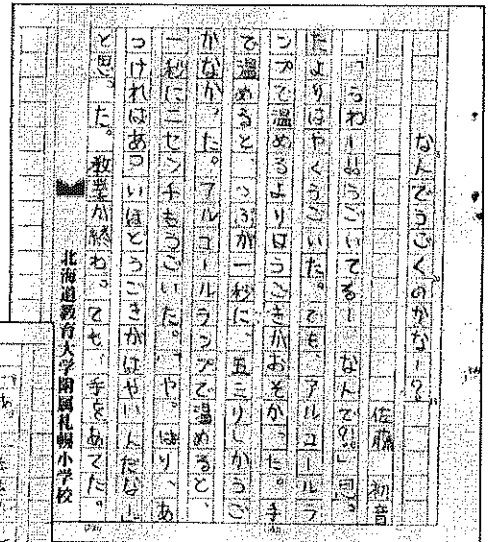 なんでうごくのかなー?
佐藤 初音
「うわー!!うごいてるー なんで?!」思っ
たよりはやくうごいた。でも、アルコールラ
ンプで温めるよりはうごきがおそかった。手
で温めると、つぶが一秒に、五ミリしかうご
かなかった。アルコールランプで温めると、
一秒にニセンチもうごいた。「やっぱり、あ
つければあついほどうごきがはやいんだな」
と思った。教業が終わっても、手をあてた。
北海道教育大学附属札幌小学校